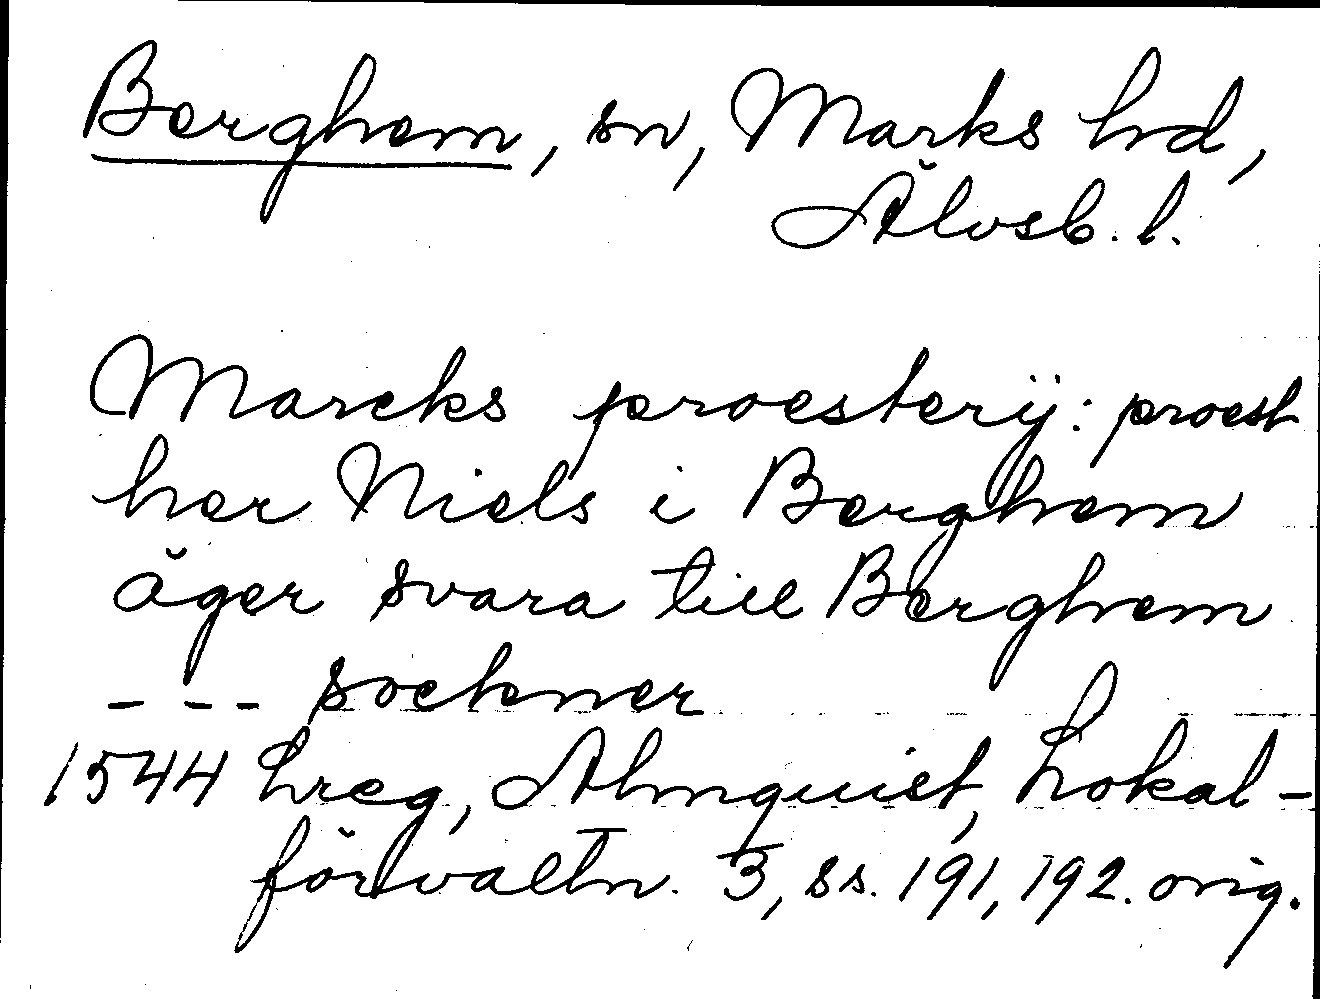 Berghem, sn, Marks hd,
Älvsb. l.
Marcks proesterij: proest
her Niels i Berghem
äger svara till Berghem
--- sockener
1544 hreg, Almquist, Lokal-
förvaltn. 3, ss. 191, 192. orig.